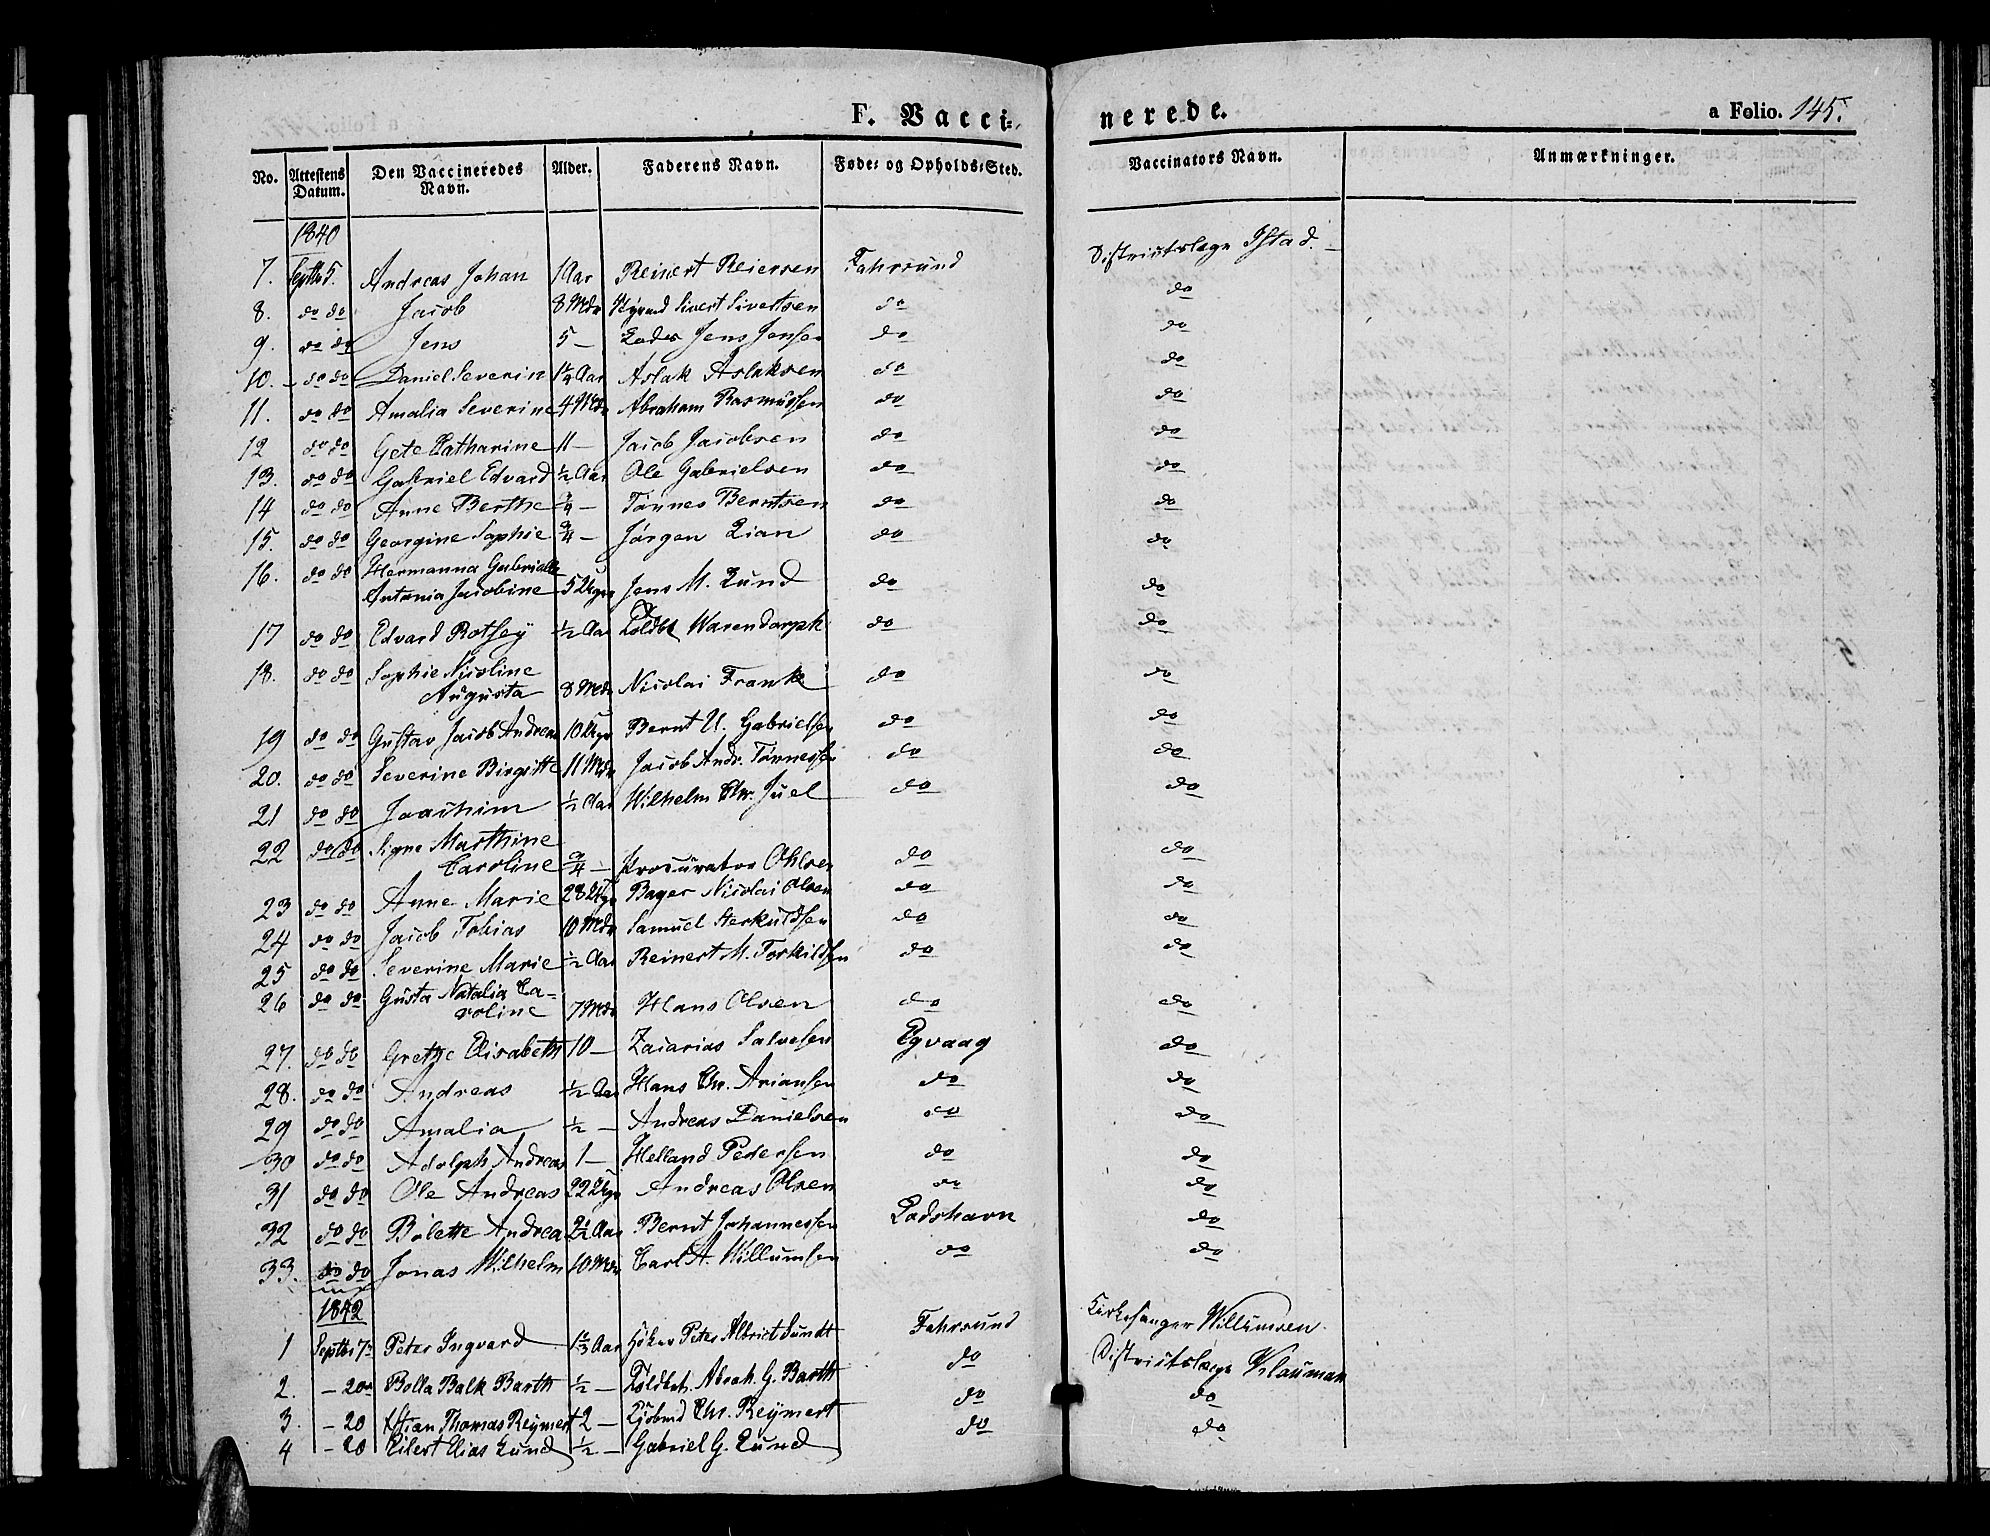 F. Vacci=
nerede.
a Folio. 145.
No. Attestens Datum. Den Vaccineredes Navn. Alder. Faderens Navn. Føde= og Opholds=Sted. Vaccinators Navn. Anmærkninger.
1840
7. Septbr 5. Andreas Johan 1 Aar Reinert Reiersen Fahrsund Districtslæge Istad.
8. do do Jacob 8 Mdr Sivert Sivertsen do do
9. do do Jens 5 — Jens Jensen do do
10. do do Daniel Severin Aar Aslak Aslaksen do do
11. do do Amalia Severine 4 Mdr Abraham Rasmussen do do
12 do do Gete Catharine 11 — Jacob Jacobsen do do
13. do do Gabriel Edvard ½ Aar Ole Gabrielsen do do
14 do do Anne Berthe — Tønnes Berntsen do do
15. do do Georgine Sophie — Jørgen Lian do do
16. do do Hermanna Gabrielle
Antonia Jacobine 5 Uger Jens M. Lund do do
17 do do Edvard Rotsey ½ Aar Toldbt Warendorph do do
18. do do Sophie Nicoline
Augusta 8 Mdr Nicolai Frank do do
19 do do Gustav Jacob Andreas 10 Uger Bernt U. Gabrielsen do do
20. do do Severine Birgitte 11 Mdr Jacob Andr. Tønnessen do do
21 do do Joachim ½ Aar Wilhelm Chr. Juel do do
22 do do Signe Marthine
Caroline ¾ — Procurator Ohlsen do do
23 do do Anne Marie 28 Uger Bager Nicolai Olsen do do
24 do do Jacob Tobias 10 Mdr Samuel do do
25 do do Severine Marie ½ Aar Reinert M. Torkildsen do do
26 do do Gusta Natalia Ca-
roline 7 Mdr Hans Olsen do do
27. do do Grethe Elisabeth 10 — Zacarias Salvesen Egvaag do
28. do do Andreas ½ Aar Hans Chr. Ariansen do do
29 do do Amalia ½ — Andreas Danielsen do do
30 do do Adolph Andreas 1 — Helland Pedersen do do
31 do do Ole Andreas 22 Uger Andreas Olsen do do
32 do do Bolette Andrea 2½ Aar Bernt Johannessen Lodshavn do
33. do do Jonas Wilhelm 10 Mdr Carl A. Willumsen do do
1842
1 Septbr 7 Peter Ingvard Aar Peter Albrict Sundt Fahrsund Kirkesanger Willumsen.
2. — 20 Bolla Balk Barth ½ — Toldbet. Abrah. G. Barth do Districtslæge Klouman
3. — 20 Thomas Reymert 2 — Chr. Reymert do do
4 — 20 Eilert Elias Lund ½ — Gabriel G. Lund do do